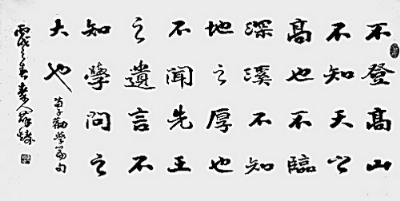 不登高山
不知天之
高也不臨
深溪不知
地之厚也
不聞先王
之遺言不
知學問之
大也
荀子勸學篇句